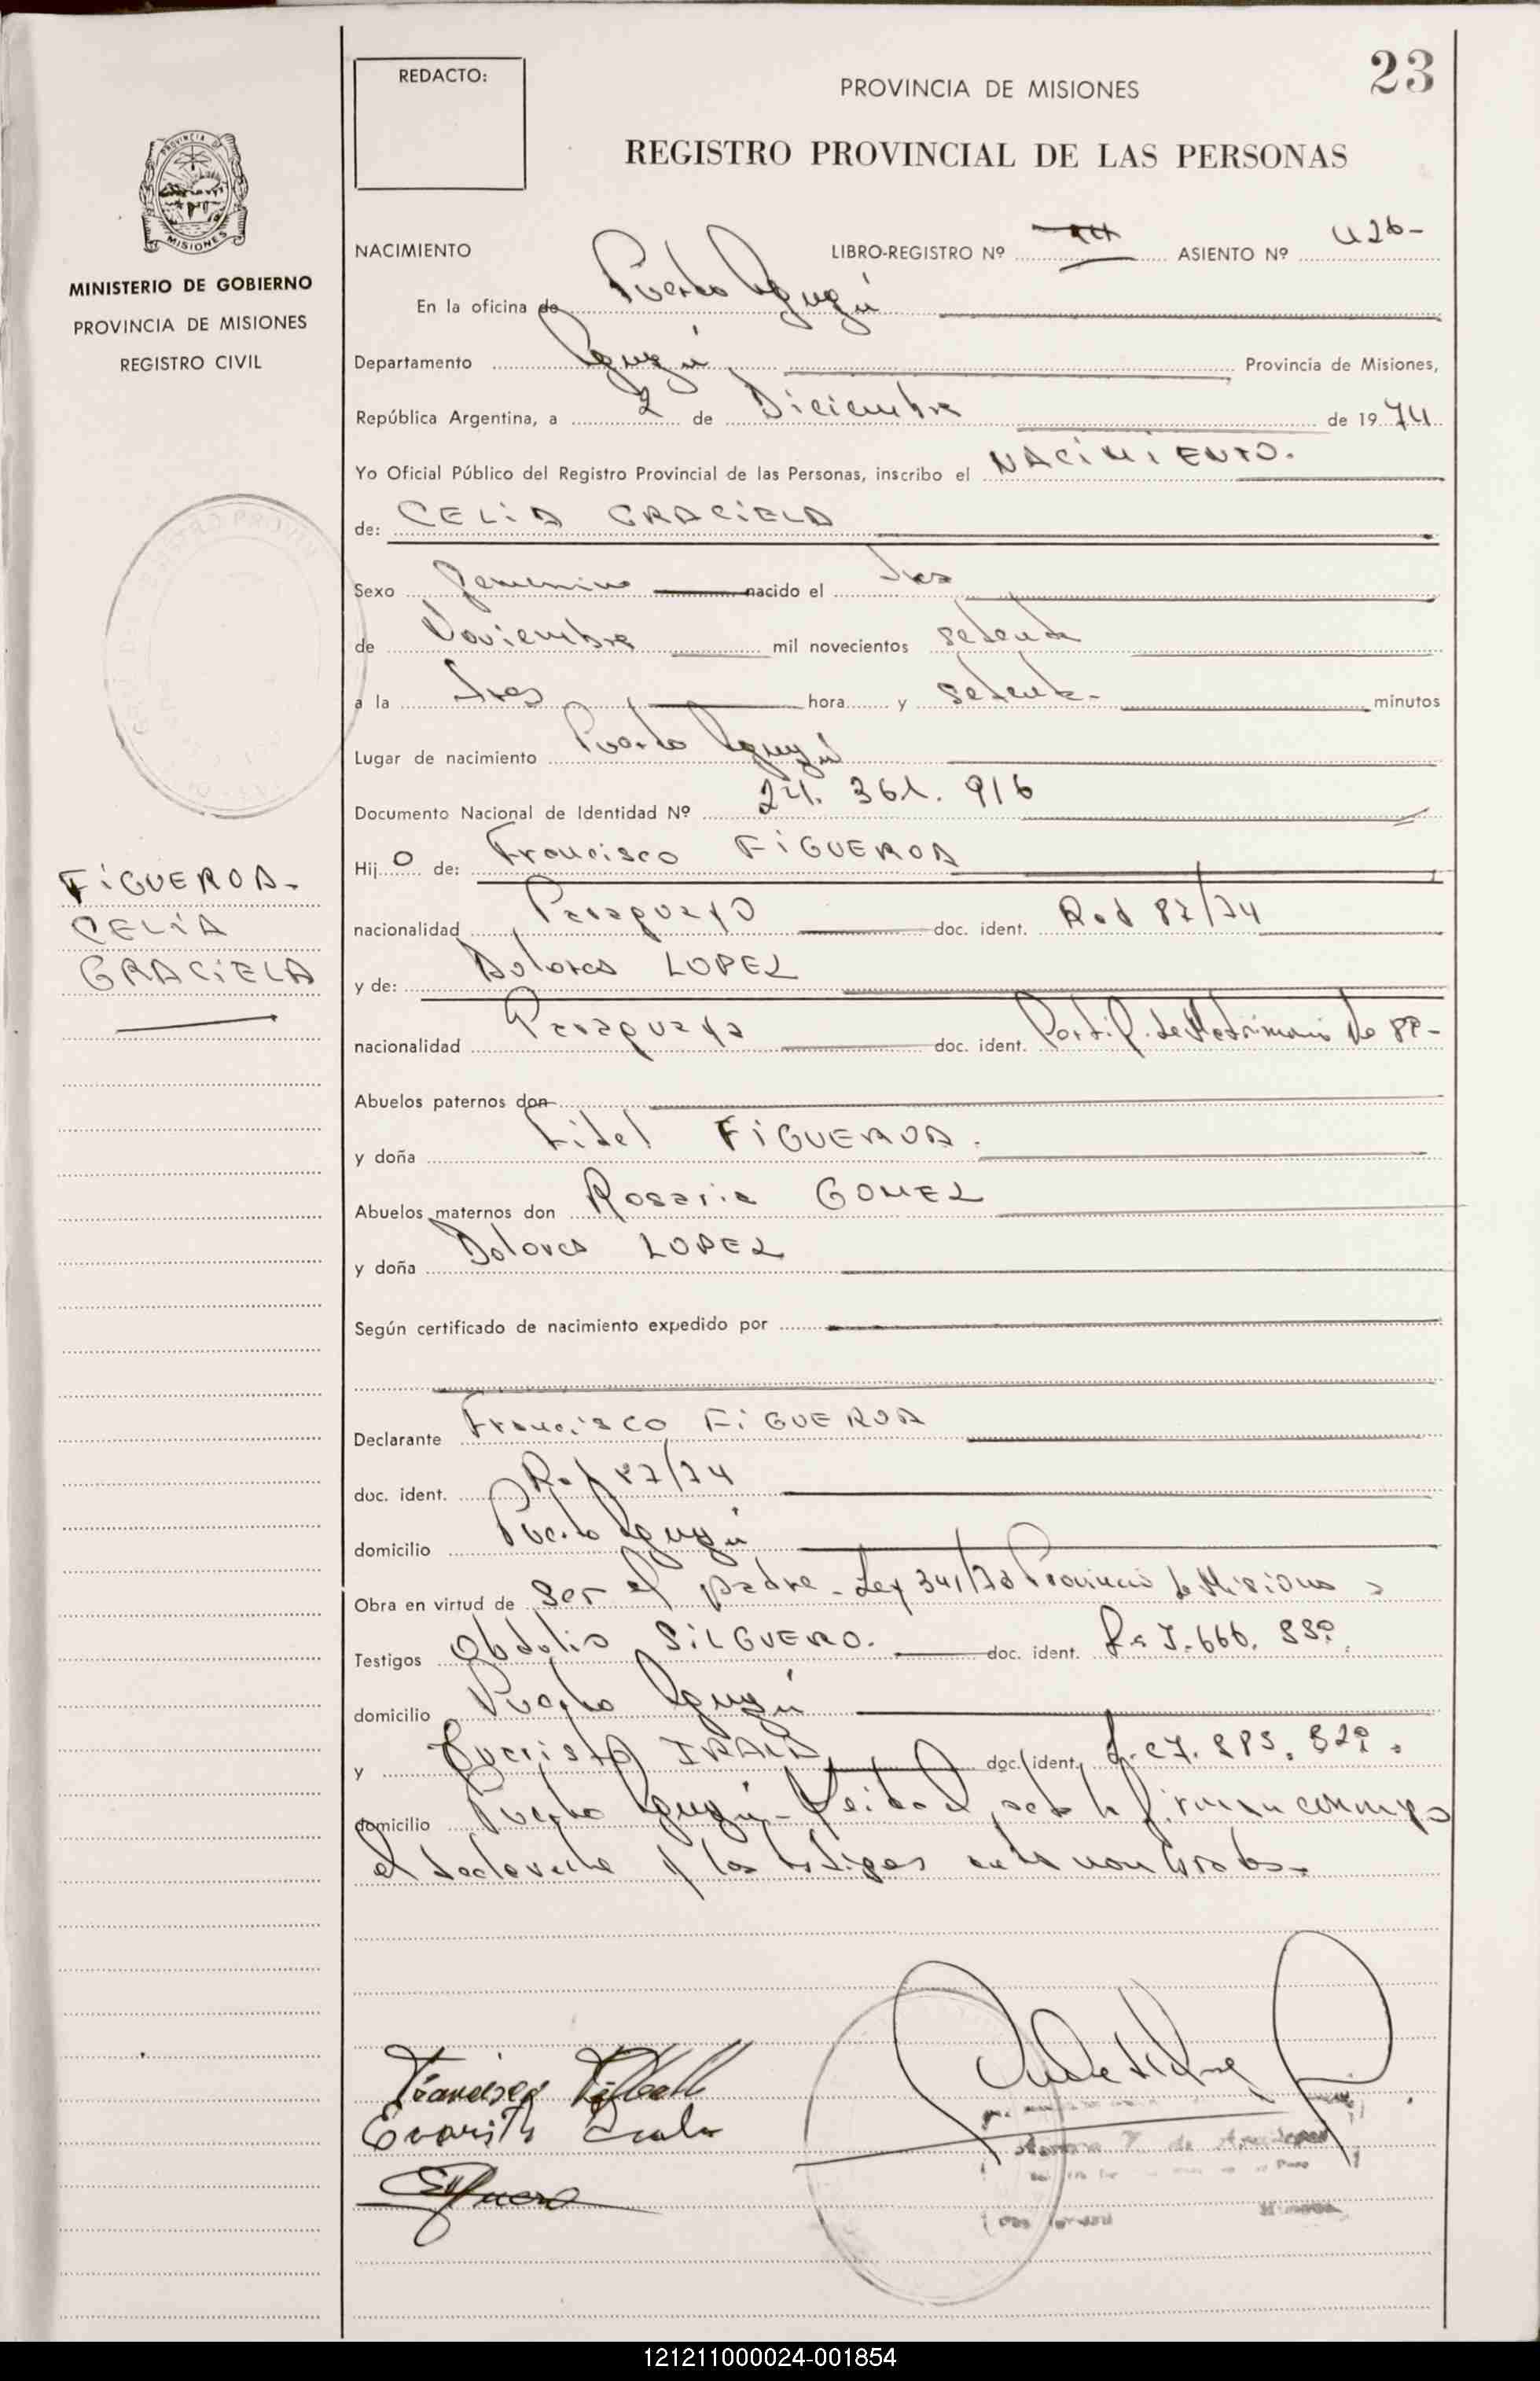 23
REDACTO:
PROVINCIA DE MISIONES
REGISTRO PROVINCIAL DE LAS PERSONAS
PROVINCIA DE
MISIONES
MINISTERIO DE GOBIERNO
PROVINCIA DE MISIONES
REGISTRO CIVIL
NACIMIENTO LIBRO-REGISTRO Nº ASIENTO Nº 426-
En la oficina de Puerto Iguazú
Departamento Iguazú Provincia de Misiones,
República Argentina, a 2 de Diciembre de 1974
Yo Oficial Público del Registro Provincial de las Personas, inscribo el NACIMIENTO.
de: CELIA GRACIELA
Sexo femenino nacido el tres
de Noviembre mil novecientos setenta
a la tres hora y setenta minutos
Lugar de nacimiento Puerto Iguazú
Documento Nacional de Identidad Nº 24. 361. 916
FIGUEROA-
CELIA
GRACIELA
Hijo de: Francisco FIGUEROA
nacionalidad Paraguayo doc. ident. Rad 87/74
y de: Dolores LOPEZ
nacionalidad Paraguaya doc. ident. de Matrimonio No
Abuelos paternos don
y doña Fidel FIGUEROA.
Abuelos maternos don Rosaria GOMEZ
y doña Dolores LOPEZ
Según certificado de nacimiento expedido por
Declarante Francisco FIGUEROA
doc. ident. Rad 87/74
domicilio Puerto Iguazú
Obra en virtud de ser el padre - Ley 341/73 Provincia de Misiones
Testigos Obdulio SILGUERO. doc. ident.
domicilio Puerto Iguazú
y IRALA doc. ident.
domicilio Puerto Iguazú - Leida el acta la firman conmigo
el declarante y los testigos nombrados.
Francisco
Evaristo Irala
121211000024-001854